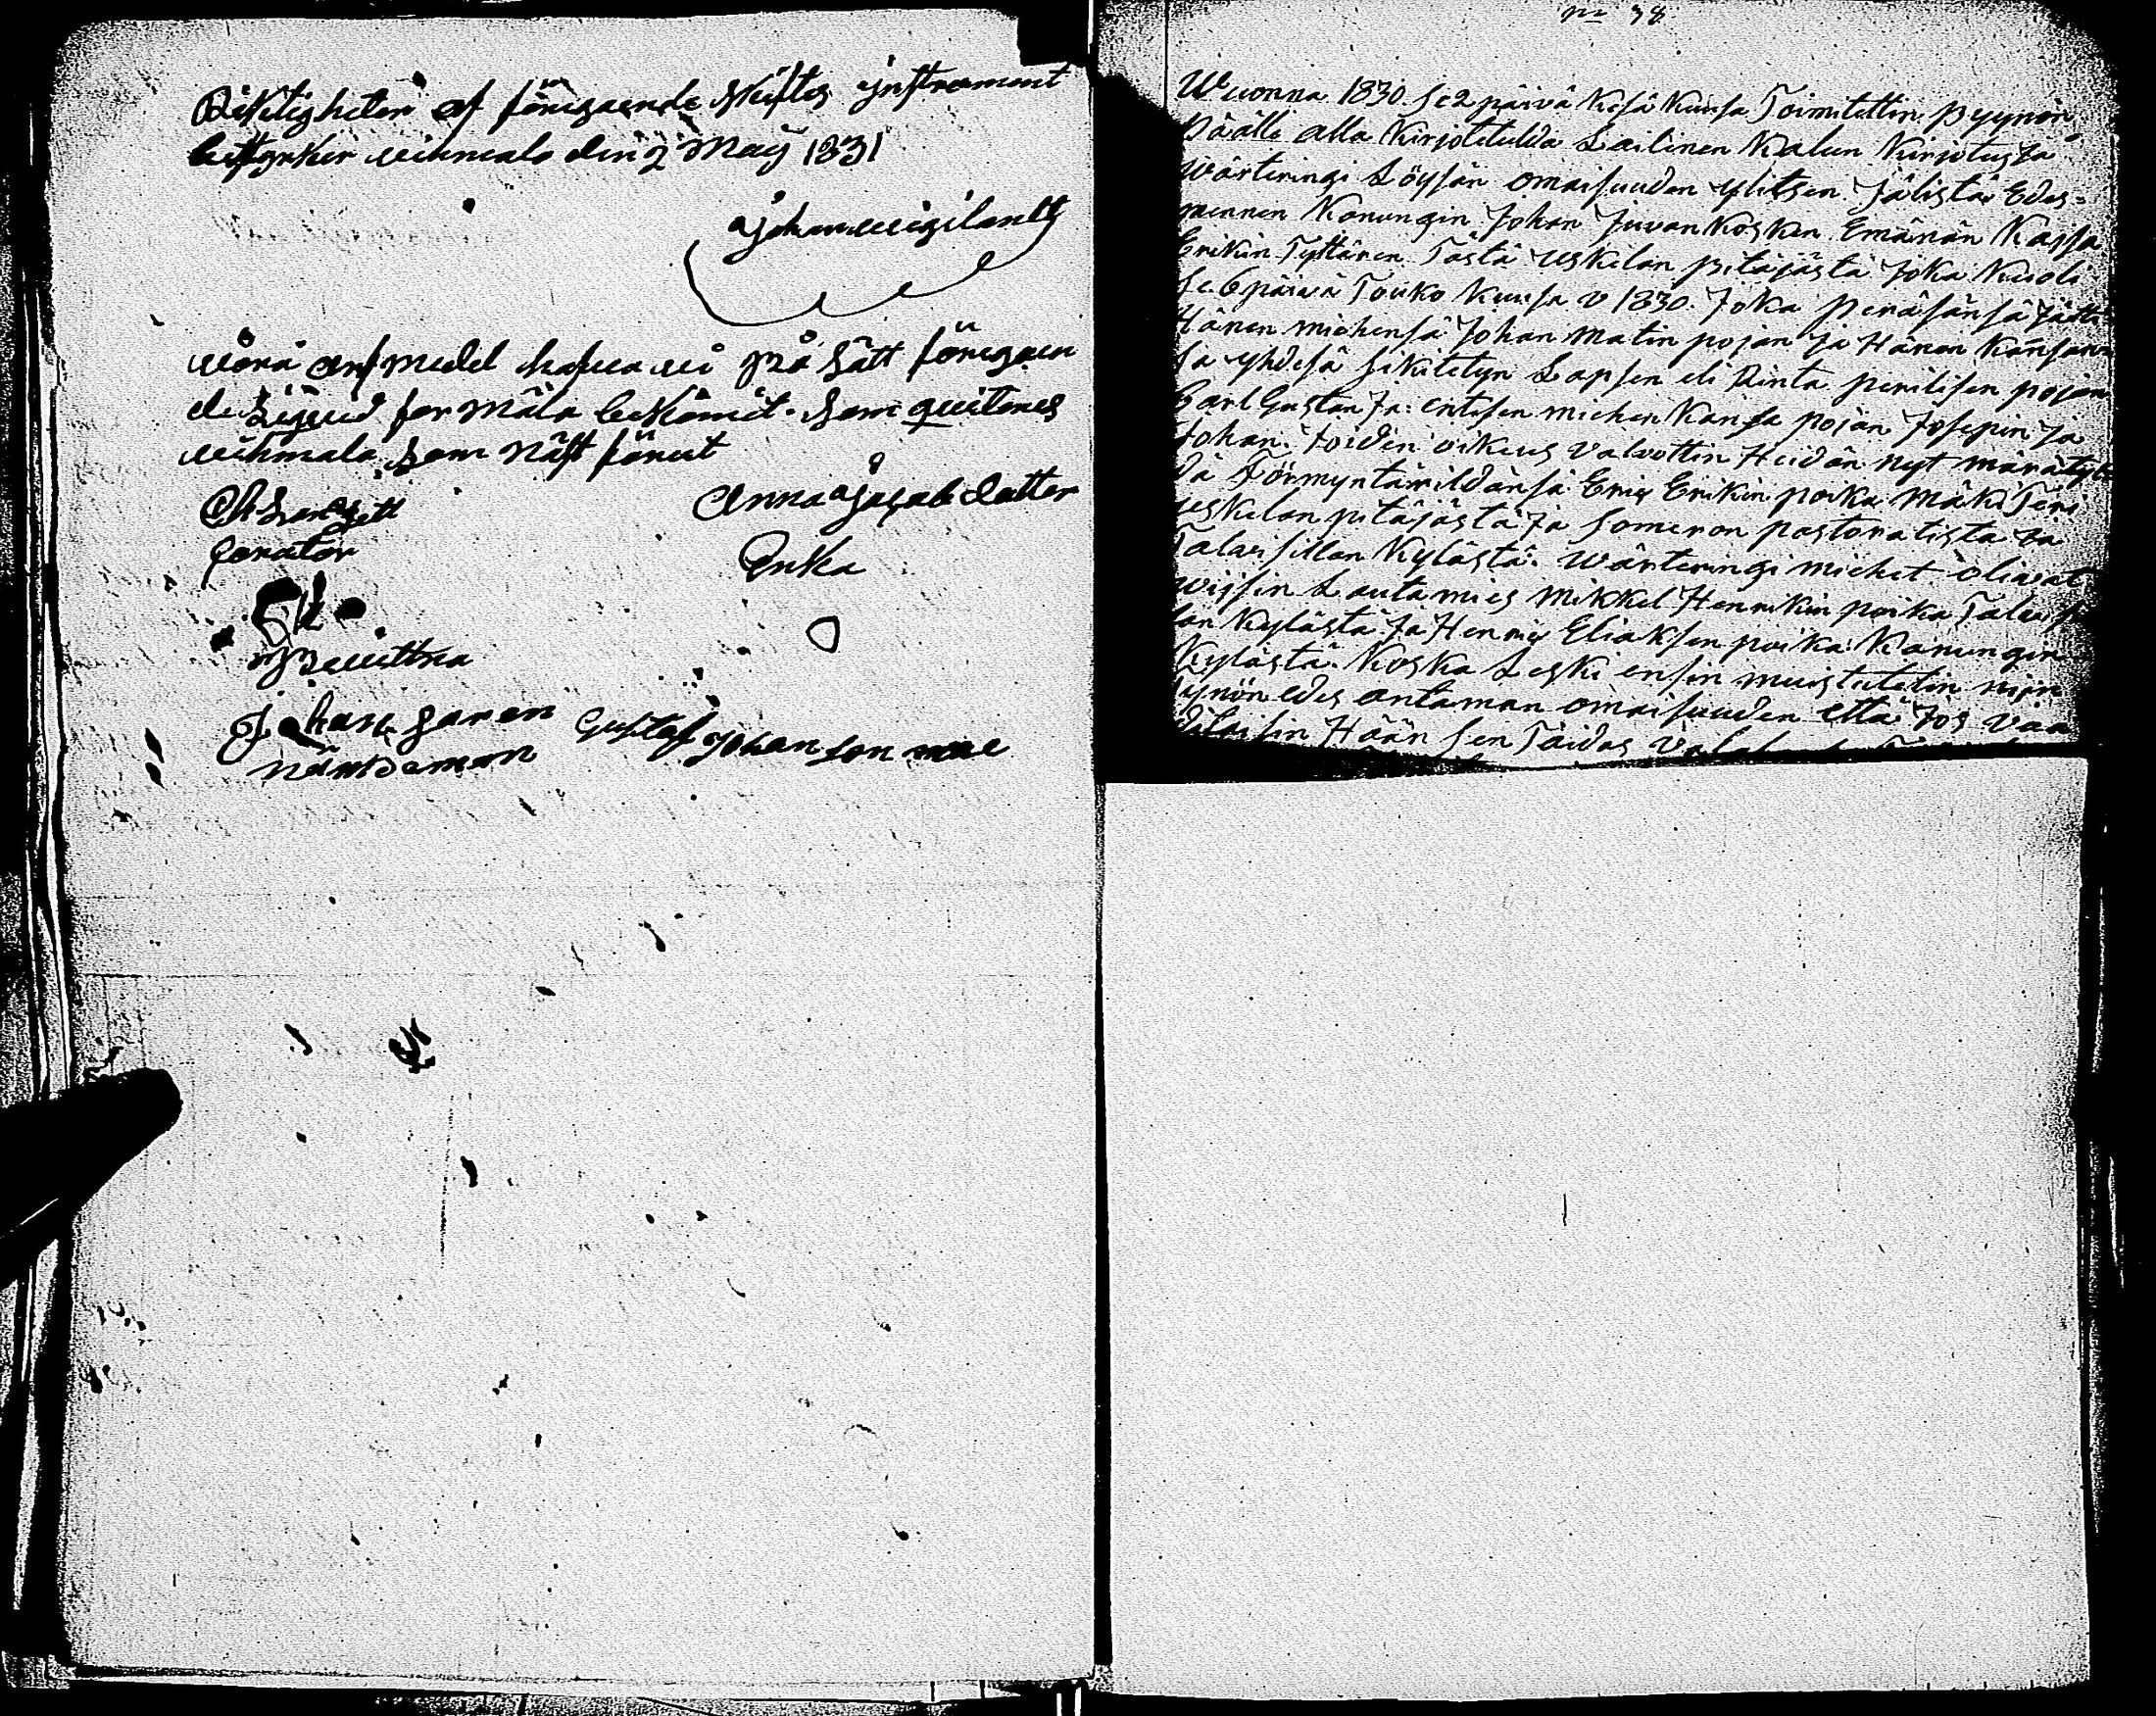 Riktigheten af föregaende skiftes jnstrument
bestyrker wihmalo den 2 May 1831
Johan Wigilantz
wåra arfmedel hafwa wi på sätt föregaen
de Liqvid förmäla bekåmit. som quiteras
wihmalo som näst förut
Curator
Anna Jacobs dotter
Enka
Bewittna
Johan
nämdeman
Gustaf Johan son
No 38
Wuonna 1830. Se 2 päivä Kesä Kuusa Toimitettin pyynön
Päälle alla Kirjotetulda Lailinen Kalun Kirjotus Ja
Wärteringi Löysän omaisuuden ylitsen Jälistä Edes=
mennen Konungin Johan Juvankosken Emänän Kajsa
Erikin Tyttären Tästä uskelan pitäjästä Joka Kuoli
Se 6 päivä Touko Kuusa v 1830. Joka Peräsänsä Jätti
Hänen miehensä Johan Matin pojan ja Hänen Kansans
sa yhdesä sikitetyn Lapsen eli Rinta perilisen pojan
Carl Gustan Ja: entisen miehen Kansa pojan Josepin Ja
Johan. Joiden oikeus valvottin Heidän nyt määrätyl
dä Förmyntärildänsä Eriq Erikin poika Mäki
uskelan pitäjästä Ja Someron pastoratista Ja
Talvisillan Kylästä. Wärteringi miehet oliwat
wissin Lautamies Mikkel Henrikin poika
lan Kylästä Ja Henriq Eliaksen poika Konungin
Kylästä. Koska Leski ensin muistutetin nijn
ynön edes antaman omaisuuden että Jos
Hään sen Taidas